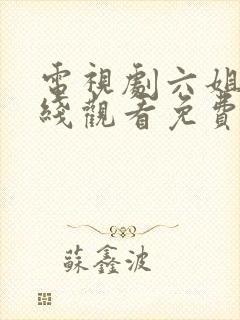 電視劇六姐
綫觀看免費
蘇鑫波